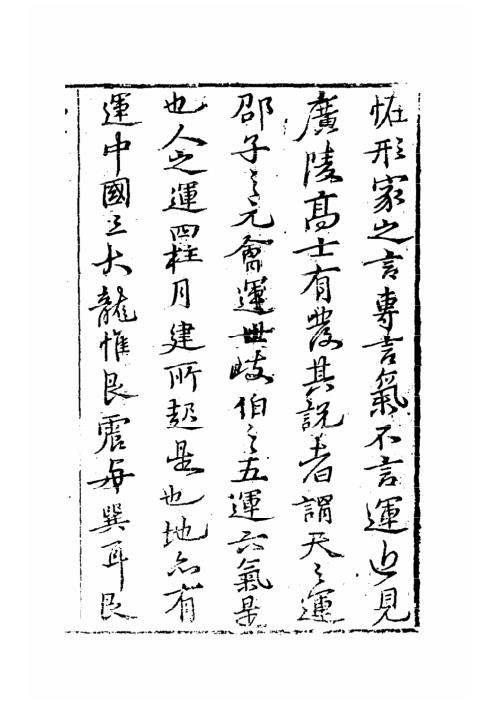 恠形家之言專言氣不言運近見
廣陵高士有發其說者謂天之運
邵子之元會運世岐伯之五運六氣是
也人之運四柱月建所起是也地亦有
運中國之大龍惟艮震與巽耳艮